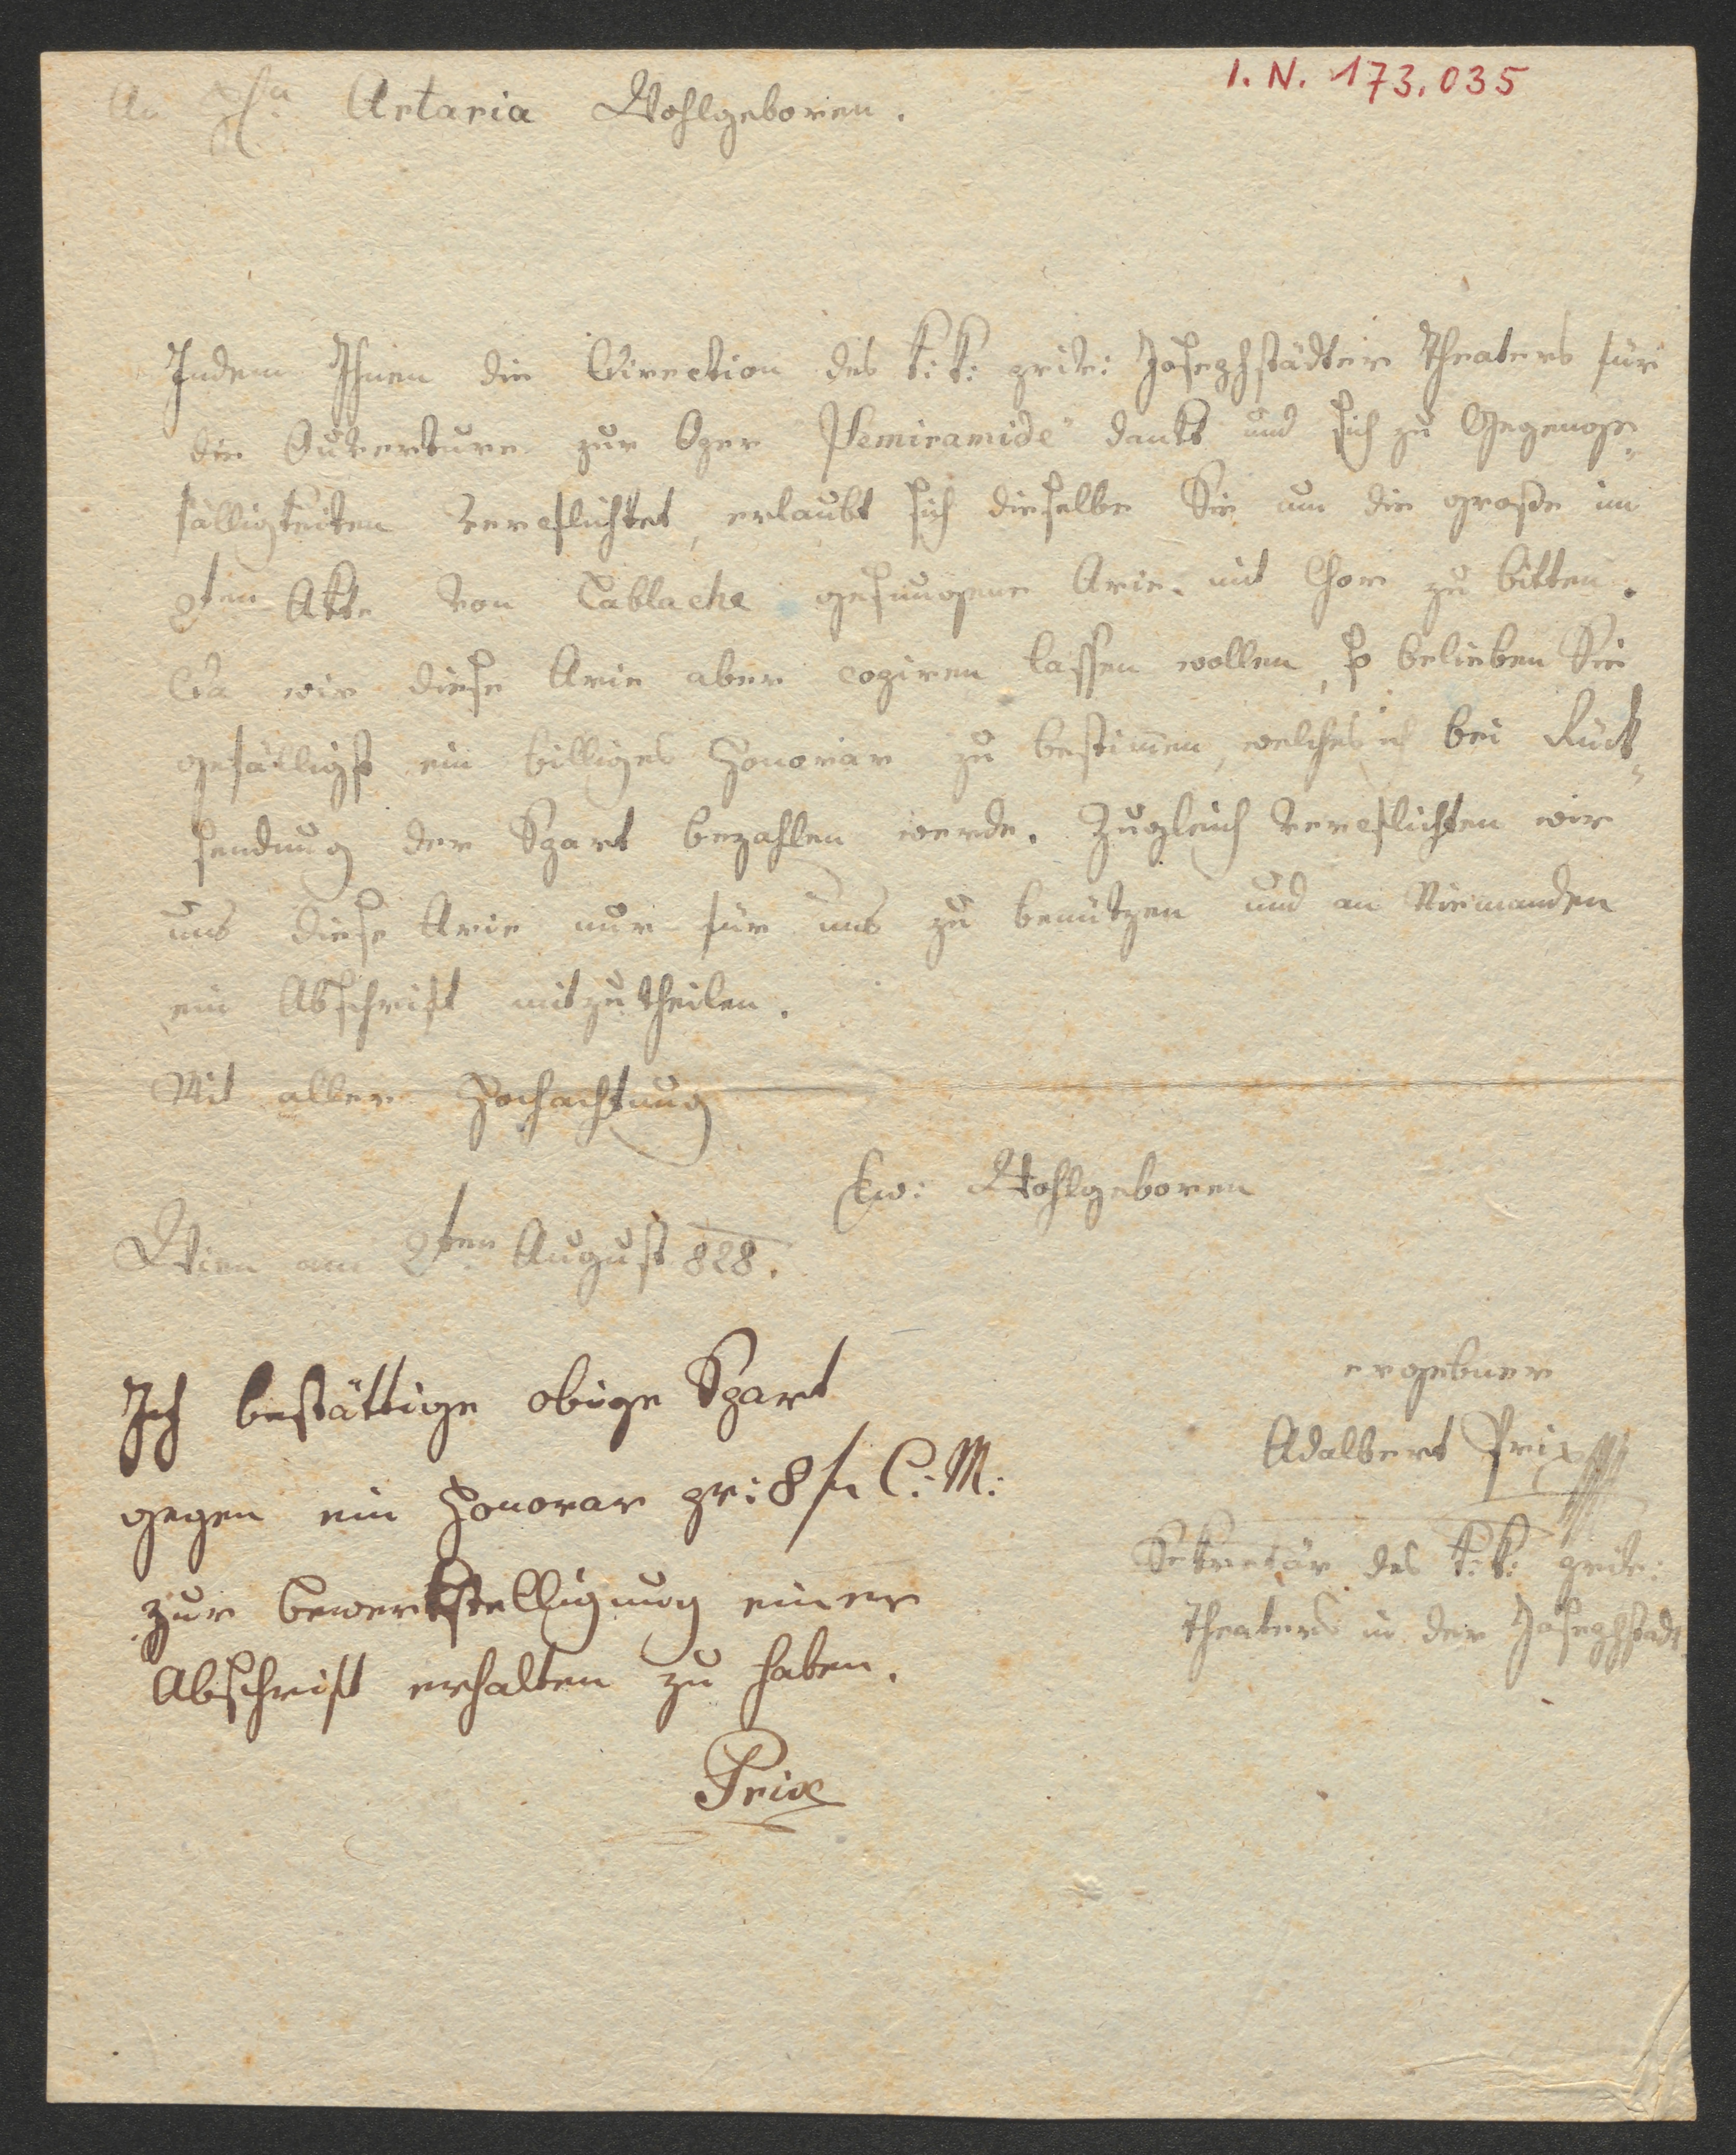 I. N. 173.035
An H:n Artaria Wohlgeboren.
Indem Ihnen die Direction des k: k: priv: Josephstädter Theaters für
die Ouverture zur Oper "Semiramide" dankt und sich zu Gegenge-
fälligkeiten verpflichtet, erlaubt sich dieselbe Sie um die große im
2ten Akte von Lablache gesungene Arie mit Chor zu bitten.
Da wir diese Arie aber copiren lassen wollen, so belieben Sie
gefälligst ein billiges Honorar zu bestimmen, welches ich bei Rück-
sendung der Spart bezahlen werde. Zugleich verpflichten wir
uns diese Arie nur für uns zu benützen und an Niemanden
ein Abschrift mitzutheilen.
Mit aller Hochachtung
Ew: Wohlgeboren
Wien am 2ten August 828.
ergebner
Adalbert Prix
Sekretär des k: k: priv:
Theaters in der Josephstadt.
Ich bestättige obige Spart
gegen ein Honorar pr: 8 fl C: M:
zur Bewerkstelligung einer
Abschrift erhalten zu haben.
Prix